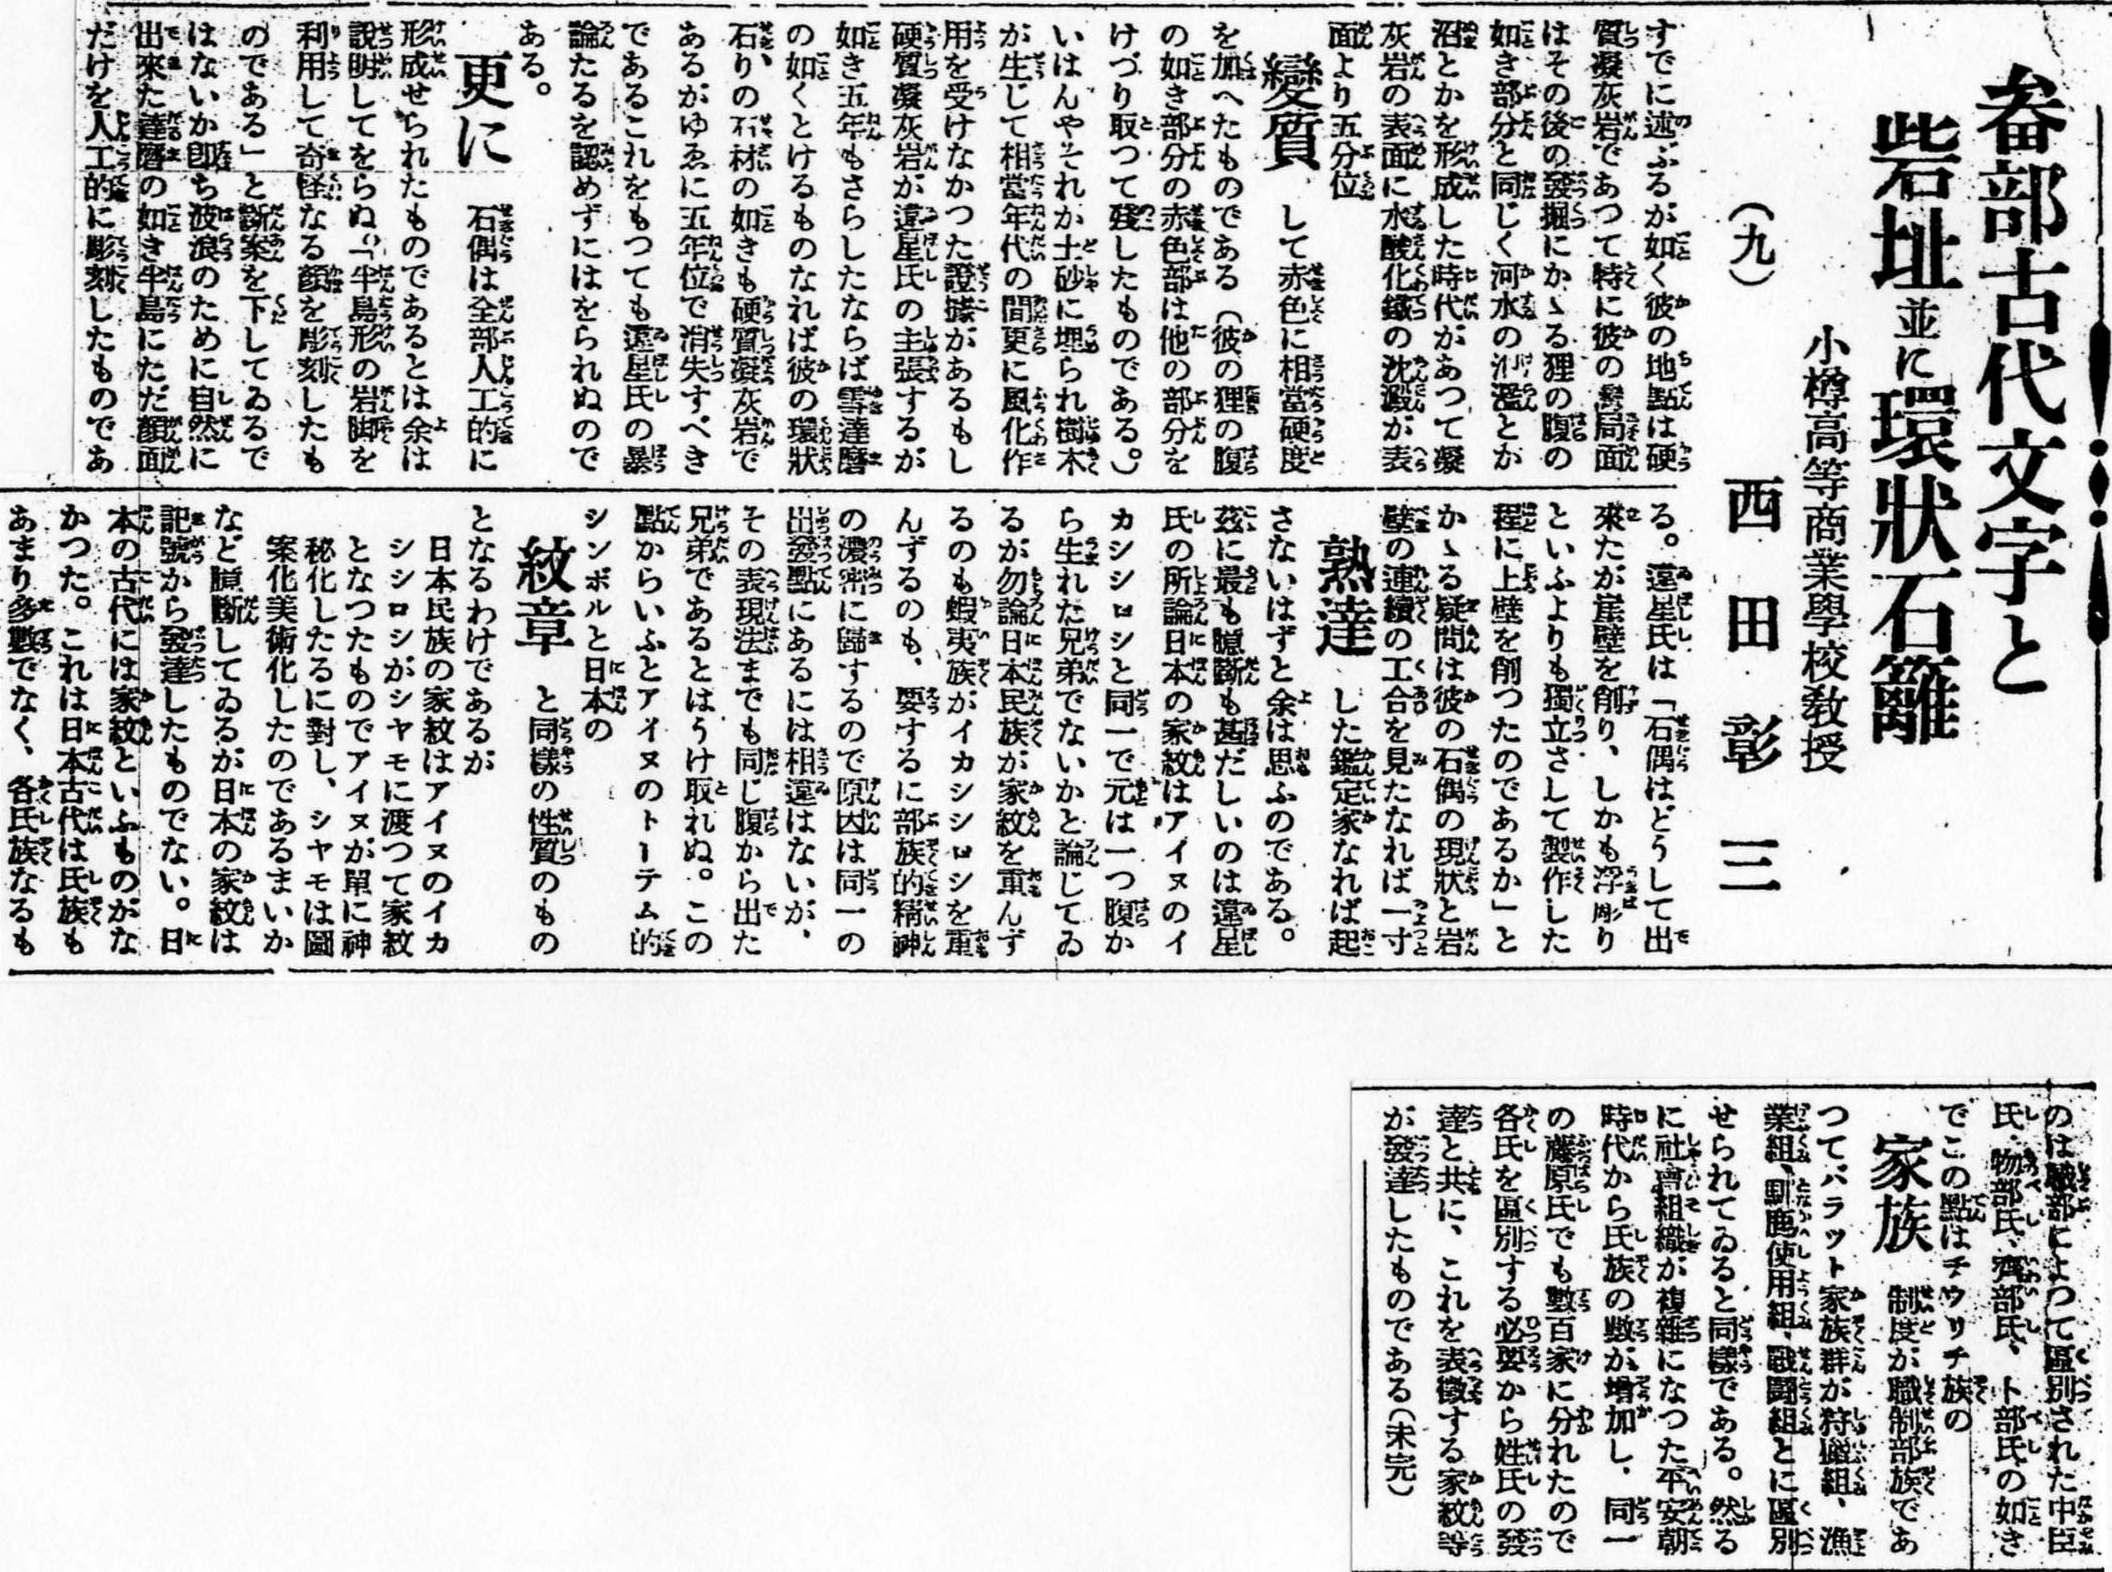 畚部古代文字と
砦址並に環狀石籬
(九)
小樽高等商業學校敎授
西田彰三
すでに述ぶるが如く彼の地點は硬
質凝灰岩であつて特に彼の局面
はその後の發掘にかゝる狸の腹の
如き部分と同じく河水の氾濫とか
沼とかを形成した時代があつて凝
灰岩の表面に水酸化鐵の沈澱が表
面より五分位
變質して赤色に相當硬度
を加へたものである(彼の狸の腹
の如き部分の赤色部は他の部分を
けづり取つて殘したものである。)
いはんやそれが土砂に埋られ樹木
が生じて相當年代の間更に風化作
用を受けなかつた證據があるもし
硬質凝灰岩が違星氏の主張するが
如き五年もさらしたならば雪達磨
の如くとけるものなれば彼の環狀
石りの石材の如きも硬質凝灰岩で
あるがゆゑに五年位で消失すべき
であるこれをもつても違星氏の暴
論たるを認めずにはをられぬので
ある。
更に石偶は全部人工的に
形成せられたものであるとは余は
說明してをらぬ「半島形の岩脚を
利用して奇怪なる顏を彫刻したも
のである」と斷案を下してゐるで
はないか卽ち波浪のために自然に
出來た達磨の如き半島にただ顏面
だけを人工的に彫刻したものであ
る。違星氏は「石偶はどうして出
來たが崖壁を削り、しかも浮彫り
といふよりも獨立さして製作した
程に上壁を削つたのであるか」と
かゝる疑問は彼の石偶の現狀と岩
壁の連續の工合を見たなれば一寸
熟達した鑑定家なれば起
さないはずと余は思ふのである。
玆に最も臆斷も甚だしいのは違星
氏の所論日本の家紋はアイヌのイ
カシシロシと同一で元は一つ腹か
ら生れた兄弟でないかと論じてゐ
るが勿論日本民族が家紋を重んず
るのも蝦夷族がイカシシロシを重
んずるのも、要するに部族的精神
の濃密に歸するので原因は同一の
出發點にあるには相違はないが、
その表現法までも同じ腹から出た
兄弟であるとはうけ取れぬ。この
點からいふとアイヌのトーテム的
シンボルと日本の
紋章と同樣の性質のもの
となるわけであるが
日本民族の家紋はアイヌのイカ
シシロシがシヤモに渡つて家紋
となつたものでアイヌが單に神
秘化したるに對し、シヤモは圖
案化美術化したのであるまいか
など臆斷してゐるが日本の家紋は
記號から發達したものでない。日
本の古代には家紋といふものがな
かつた。これは日本古代は氏族も
あまり多數でなく、各氏族なるも
のは職部によつて區別された中臣
氏、物部氏、齊部氏、卜部氏の如き
でこの點はチウリチ族の
家族制度が職制部族であ
つてバラツト家族群が狩獵組、漁
業組、馴鹿使用組、戰鬪組とに區別
せられてゐると同樣である。然る
に社會組織が複雜になつた平安朝
時代から氏族の數が增加し、同一
の藤原氏でも數百家に分れたので
各氏を區別する必要から姓氏の發
達と共に、これを表徵する家紋等
が發達したものである(未完)